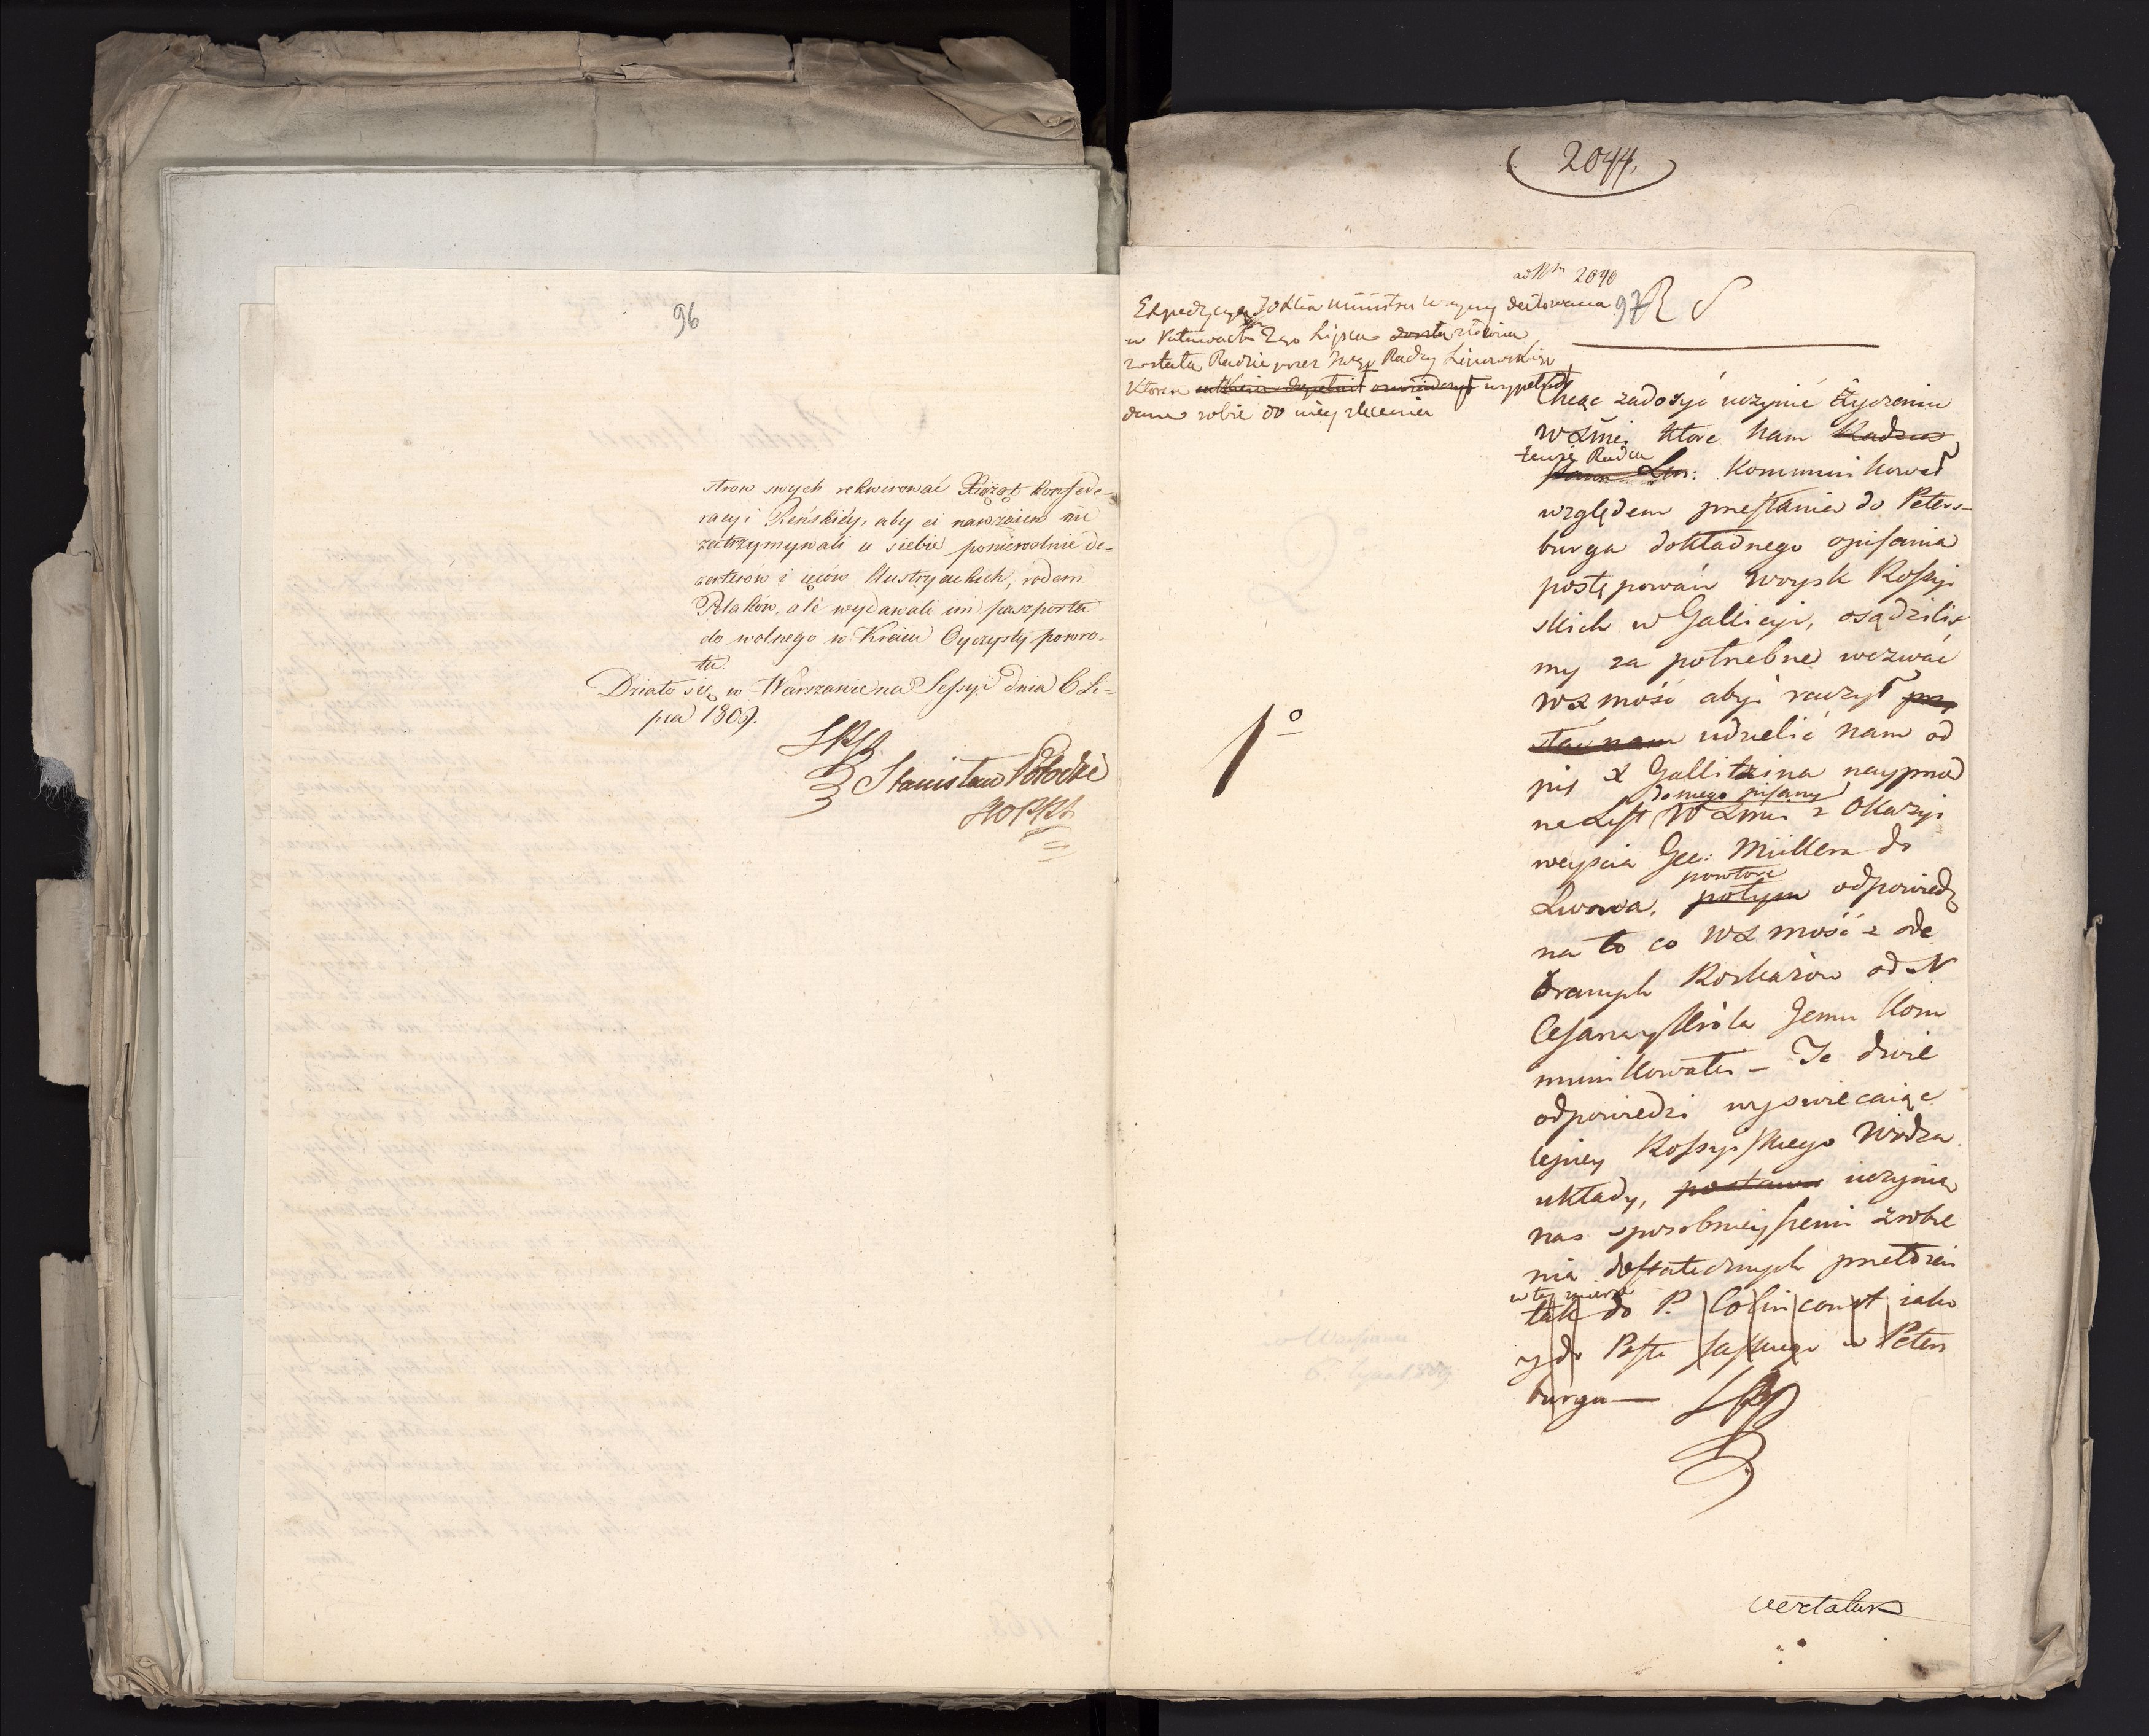 96
strow swych rekwirować Xiążąt konfede-
racyi Reńskiéy, aby ci nawzaiem nie
zatrzymywali u siebie poniewolnie de-
zerterów i ięców Austryackich, rodem
Polaków, ale wydawali im paszporta
do wolnego w Kraiu Oyczysty powro-
tu.
Działo się w Warszawie na Sessyi dnia 6 Li-
pca 1809.
Stanisław Potocki
2044.
ad Nm 2040
Expedycya JO Xcia Ministra Woyny datowana 97 R S
w Puławach 2go Lipca złożona
została Radzie przez Radcę Linowskiego
który wypełnił
dane sobie do niey zlecenia
Chcąc zadosyć uczynić życzeniu
WXMci które nam Radca
tenże Radca
Lin: kommunikował
względem przesłania do Peters-
burga dokładnego opisania
postępowań woysk Rossyi
skich w Gallicyi, osądzilis
my za potrzebne wezwać
WX mość abyś raczył prze
słać nam udzielić nam od
pis X Gallitzina nayprzod
do niego pisany
na List WXMci z Okazyi
weyscia Ge: Müllera do
powtore
Lwowa, potym odpowiedź
na to co WX mość z ode
branych Rozkazow od N
Cesarza y Króla Jemu Kom
munikowałes – Te dwie
odpowiedzi wyswiecaiąc
lepiey Rossyiskiego Wodza
układy, uczynią
nas sposobnieyszemi zrobie
nia dostatecznych przełożeń
w tey mierze
tak do P. Colincourt iako
y do Posła Saskiego w Peters
burgu —
1o
w Warszawie
6. Lipca 1809
vertatur